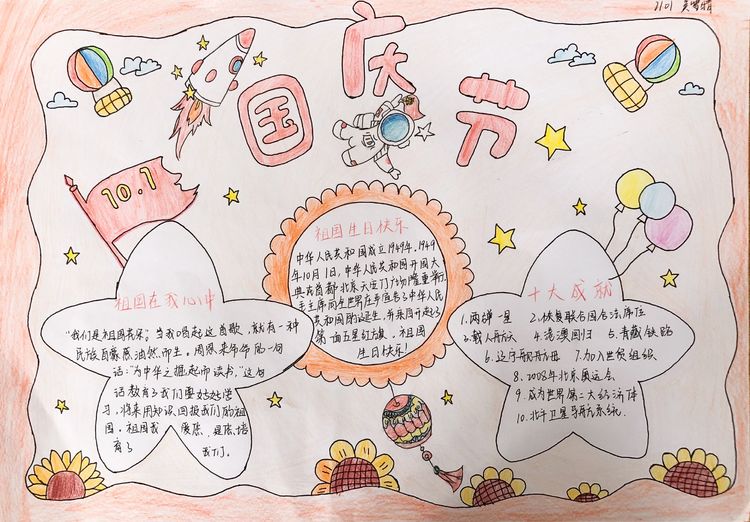 1101
国庆节
10.1
祖国生日快乐
中华人民共和国成立1949年,1949
年10月1日,中华人民共和国开国大
典在首都北京天安门广场隆重举行,
毛主席向全世界庄严宣告了中华人民
共和国的诞生,并亲自升起了
第一面五星红旗。祖国
生日快乐!
祖国在我心中
"我们是祖国花朵"当我唱起这首歌,就有一种
民族自豪感油然而生。周恩来
话:"为中华之掘起而读书。"这句
话教育了我们要好好学
习,将来用知识回报我们的祖
国。祖国我
育了 我们。
十大成就
1.两弹一星 2.恢复联合国合法席位
3.载人航天 4.港澳回归 5.青藏铁路
6.辽宁舰航母 7.加入世贸组织
8.2008年北京奥运会
9.成为世界第二大经济体
10.北斗卫星导航系统.